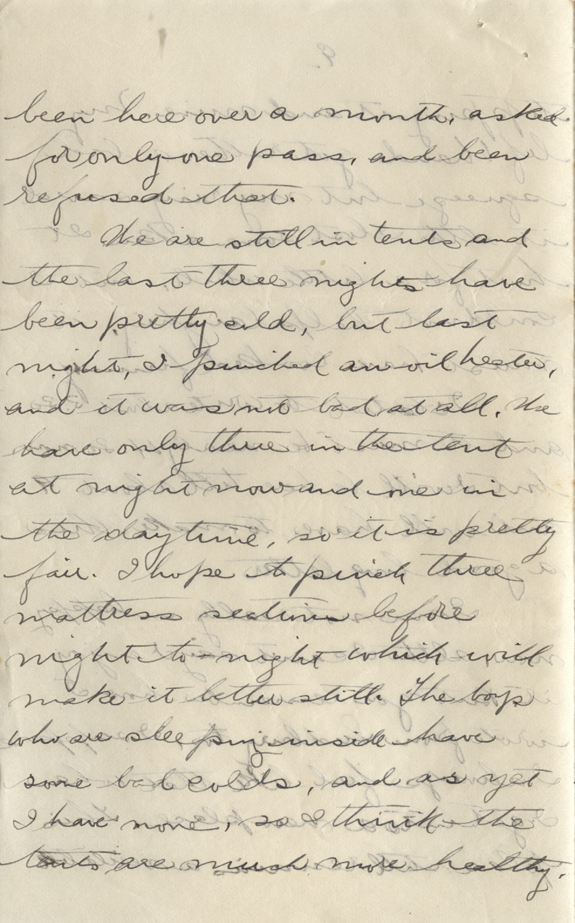 9.
been here over a month, asked
for only one pass, and been
refused that.
We are still in tents and
the last three nights have
been pretty cold, but last
night, I pinched an oil heater,
and it was not bad at all. We
have only three in the tent
at night now and one in
the daytime, so it is pretty
fair. I hope to pinch three
mattress sections before
night to-night which will
make it better still. The boys
who are sleeping inside have
some bad colds, and as yet
I have none, so I think the
tents are much more healthy.